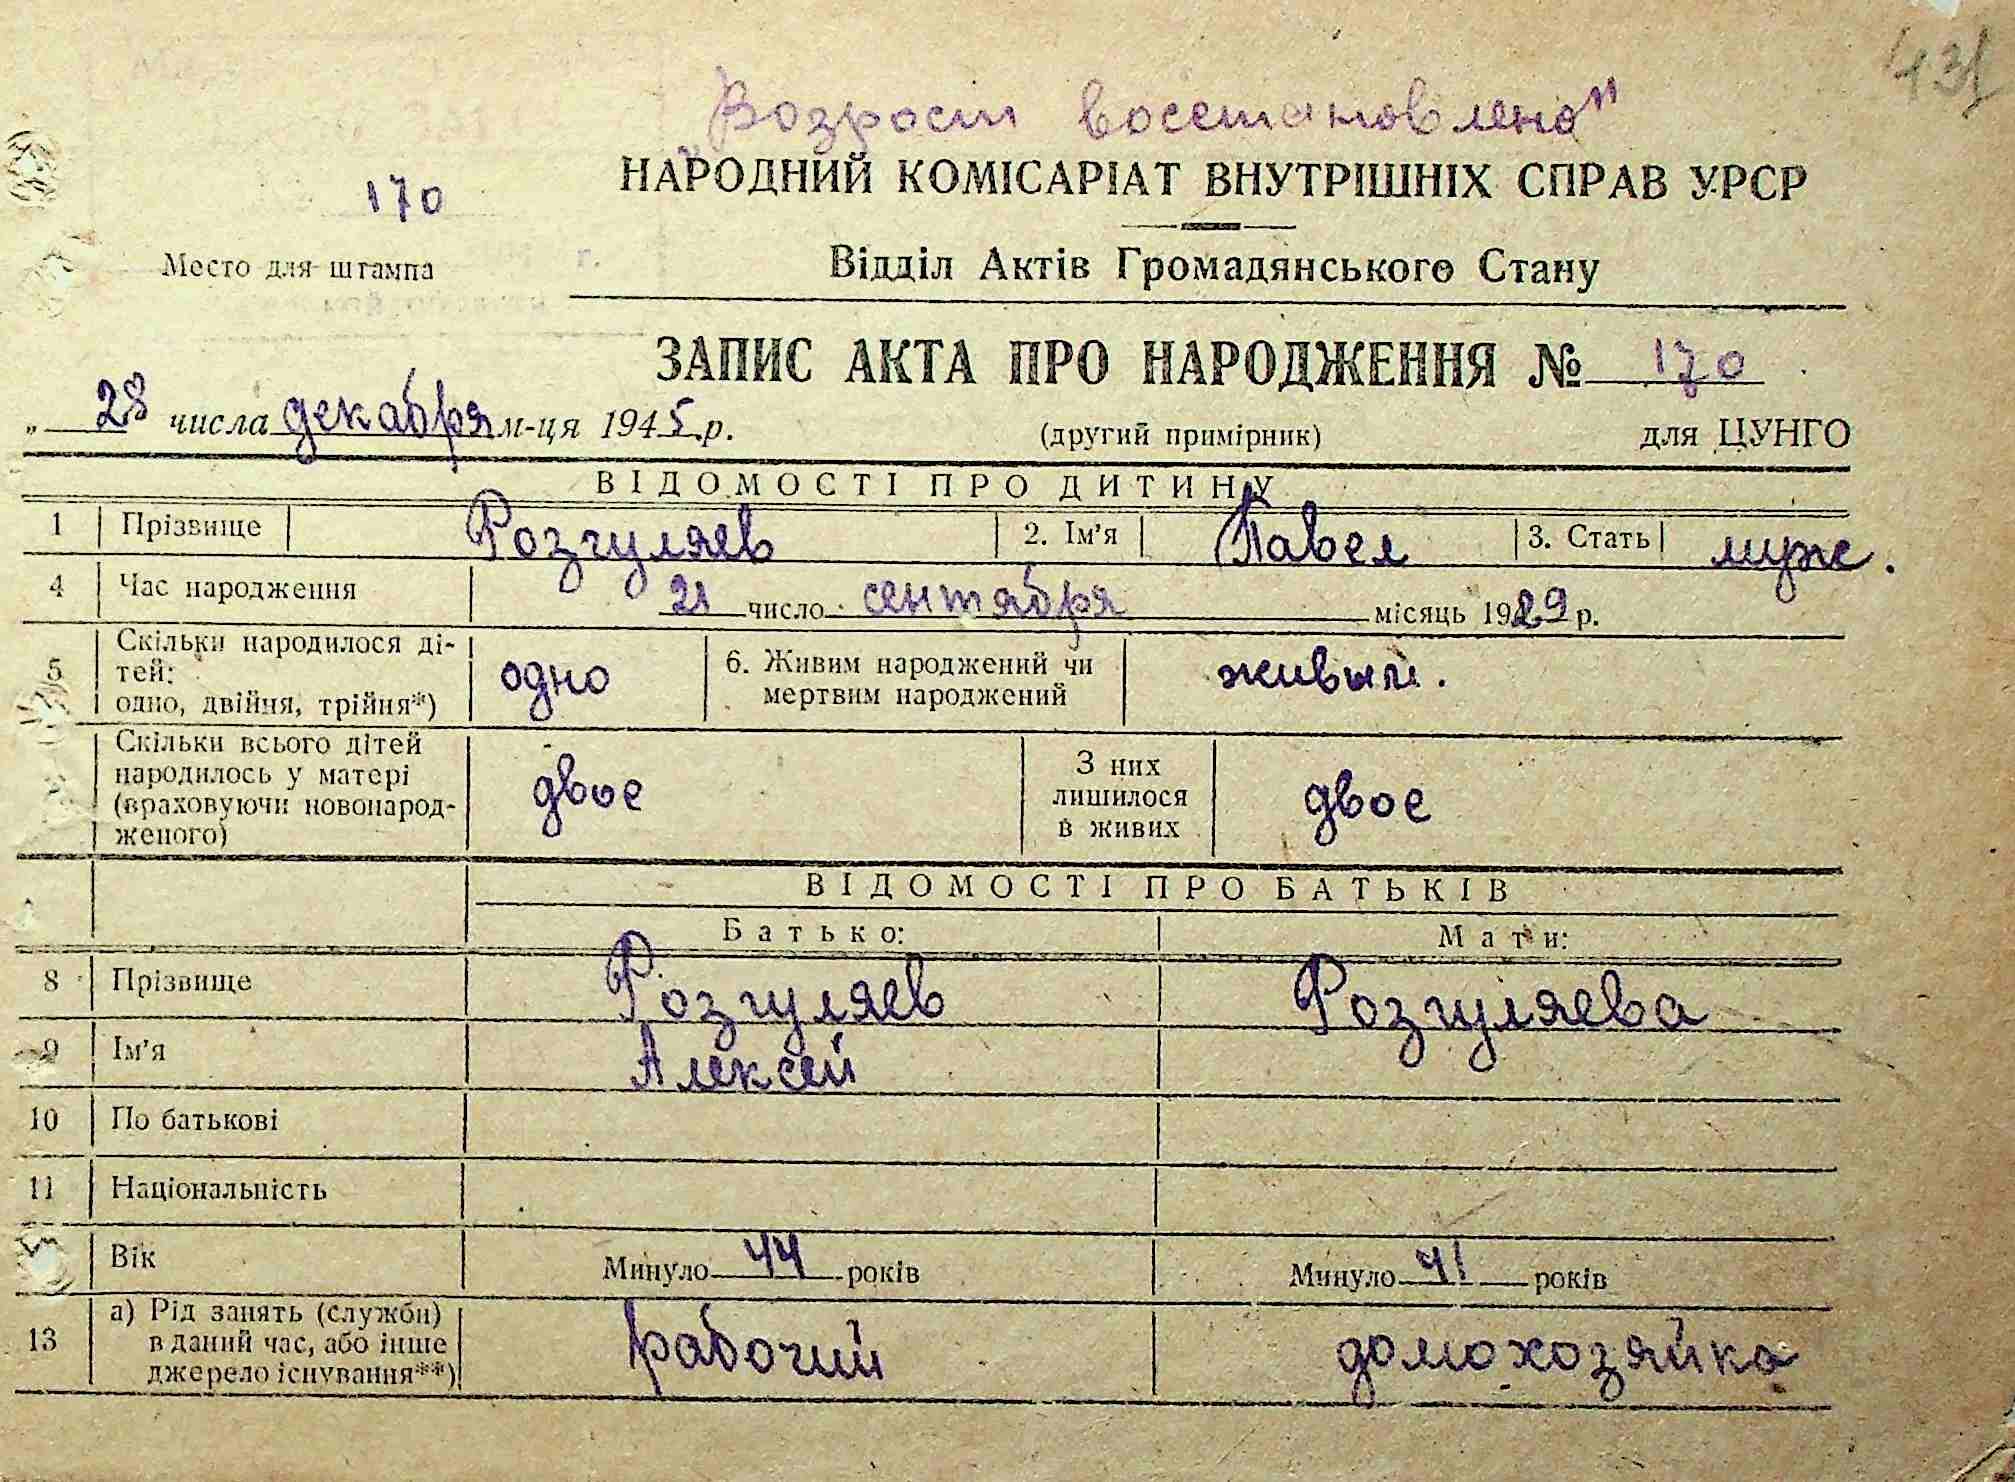 431
„Возрост восстановлено"
НАРОДНИЙ КОМІСАРІАТ ВНУТРІШНІХ СПРАВ УРСР
170
Место для штампа
Відділ Актів Громадянського Стану
ЗАПИС АКТА ПРО НАРОДЖЕННЯ № 170
„ 28 числа декабря м-ця 1945 р. (другий примірник) для ЦУНГО
ВІДОМОСТІ ПРО ДИТИНУ
1 Прізвище Розгуляев 2. Ім'я Павел 3. Стать муж.
4 Час народження 21 число сентября місяць 1929 р.
5 Скільки народилося ді-
тей:
одно, двійня, трійня*) одно 6. Живим народжений чи
мертвим народжений живым.
Скільки всього дітей
народилось у матері
(враховуючи новонарод-
женого) двое З них
лишилося
в живих двое
ВІДОМОСТІ ПРО БАТЬКІВ
Батько: Мати:
8 Прізвище Розгуляев Розгуляева
9 Ім'я Алексей
10 По батькові
11 Національність
Вік Минуло 44 років Минуло 41 років
13 а) Рід занять (служби)
в даний час, або інше
джерело існування**) рабочий домохозяйка